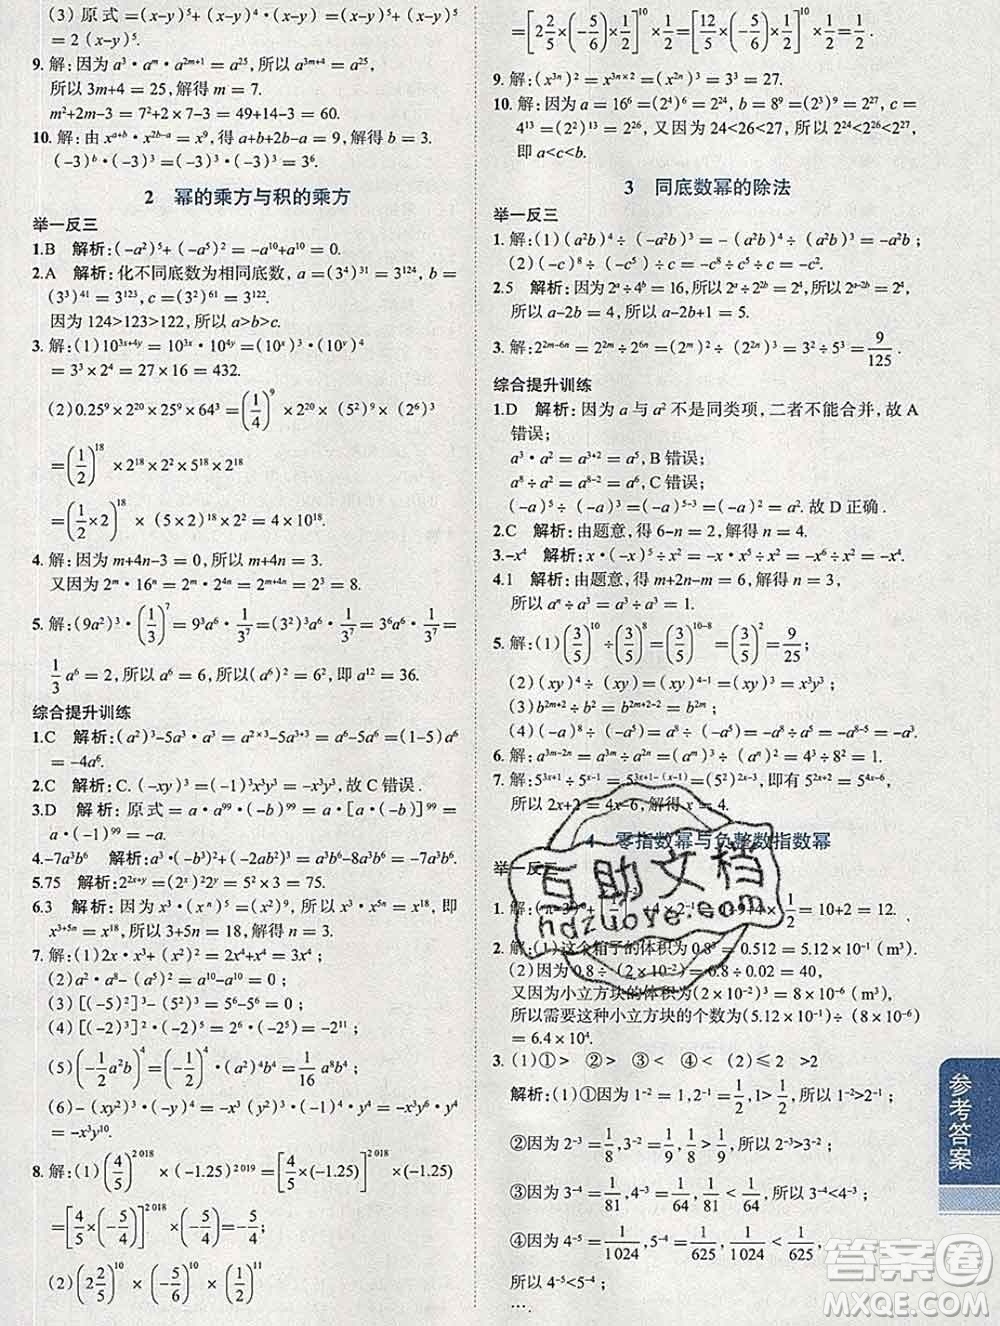 (3)原式=(x-y)⁵+(x-y)⁵=(x-y)⁵+(x-y)⁵
=2(x-y)⁵.
9.解:因为a³·aᵐ·a²ᵐ⁺¹=a²⁵,所以a³ᵐ⁺⁴=a²⁵,
所以3m+4=25,解得m=7.
m²+2m-3=7²+2×7-3=49+14-3=60.
10.解:由xᵃ⁺ᵇ·x²ᵇ⁻ᵃ=x⁹,得a+b+2b-a=9,解得b=3.
(-3)ᵇ·(-3)³=(-3)³·(-3)³=3⁶.
2 幂的乘方与积的乘方
举一反三
1.B 解析:(-a²)⁵+(-a⁵)²=-a¹⁰+a¹⁰=0.
2.A 解析:化不同底数为相同底数,a=(3⁴)³¹=3¹²⁴,b=
(3³)⁴¹=3¹²³,c=(3²)⁶¹=3¹²².
因为124>123>122,所以a>b>c.
3.解:(1)10³ˣ⁺⁴ʸ=10³ˣ·10⁴ʸ=(10ˣ)³·(10ʸ)⁴
=3³×2⁴=27×16=432.
(2)0.25⁹×2²⁰×25⁹×64³=(1/4)⁹×2²⁰×(5²)⁹×(2⁶)³
=(1/2)¹⁸×2¹⁸×2²×5¹⁸×2¹⁸
=(1/2×2)¹⁸×(5×2)¹⁸×2²=4×10¹⁸.
4.解:因为m+4n-3=0,所以m+4n=3.
又因为2ᵐ·16ⁿ=2ᵐ·2⁴ⁿ=2ᵐ⁺⁴ⁿ=2³=8.
5.解:(9a²)³·(1/3)⁷=9³a⁶·1/3⁷=(3²)³a⁶·1/3⁷=3⁶a⁶·1/3⁷=
1/3a⁶=2,所以a⁶=6,所以(a⁶)²=6²,即a¹²=36.
综合提升训练
1.C 解析:(a²)³-5a³·a³=a²ˣ³-5a³⁺³=(1-5)a⁶
=-4a⁶.
2.C 解析:C.(-xy)³=(-1)³x³y³=-x³y³,故C错误.
3.D 解析:原式=a·a⁹⁹·(-b)⁹⁹=a·[a·(-b)]⁹⁹=
a·(-1)⁹⁹=-a.
4.-7a³b⁶ 解析:(ab²)³-(2ab²)³=a³b⁶-8a³b⁶=-7a³b⁶.
5.75 解析:2²ˣ⁺ʸ=(2ˣ)²·2ʸ=5²×3=75.
6.3 解析:因为x³·(xⁿ)⁵=(x²)⁹,所以x³·x⁵ⁿ=x¹⁸,即
x³⁺⁵ⁿ=x¹⁸,所以3+5n=18,解得n=3.
7.解:(1)2x·x³+(x²)²=2x⁴+x⁴=3x⁴;
(2)a²·a⁸-(a⁵)²=a¹⁰-a¹⁰=0;
(3)[(-5)²]³-(5²)³=5⁶-5⁶=0;
(4)[(-2)²]³·(-2)⁵=2⁶·(-2⁵)=-2¹¹;
(5)(-1/2a²b)⁴=(-1/2)⁴·(a²)⁴·b⁴=1/16a⁸b⁴;
(6)-(-x²y)³·(-y)=-(-x⁶y³)·(-y)=-x⁶y³·y=
-x⁶y⁴.
8.解:(1)(4/5)²⁰¹⁸×(-1.25)²⁰¹⁹=[4/5×(-1.25)]²⁰¹⁸×(-1.25)
=[4/5×(-5/4)]²⁰¹⁸×(-5/4)=-5/4;
(2)(2 2/5)¹⁰×(-5/6)¹⁰×(1/2)¹¹
=[2 2/5×(-5/6)×1/2]¹⁰×1/2=[12/5×(-5/6)×1/2]¹⁰×1/2=1/2.
9.解:(x³ⁿ)²=x³ⁿˣ²=(x²ⁿ)³=3³=27.
10.解:因为a=16⁶=(2⁴)⁶=2²⁴,b=8⁹=(2³)⁹=2²⁷,c=
4¹³=(2²)¹³=2²⁶,又因为24<26<27,所以2²⁴<2²⁶<2²⁷,
即a<c<b.
3 同底数幂的除法
举一反三
1.解:(1)(a²b)⁴÷(-a²b)³=-(a²b)⁴÷(a²b)³=-a²b;
(2)(-c)⁸÷(-c⁵)=c⁸÷(-c⁵)=-c⁸÷c⁵=-c³.
2.5 解析:因为2ᵃ÷4ᵇ=16,所以2ᵃ÷2²ᵇ=16,2ᵃ⁻²ᵇ=2⁴,
所以a-2b=4,所以a-2b+1=5.
3.解:2²ᵐ⁻⁶ⁿ=2²ᵐ÷2⁶ⁿ=(2ᵐ)²÷(2ⁿ)⁶=3²÷5³=9/125.
综合提升训练
1.D 解析:因为a与a²不是同类项,二者不能合并,故A
错误;
a³·a²=a³⁺²=a⁵,B错误;
a⁸÷a²=a⁸⁻²=a⁶,C错误;
(-a)⁵÷(-a)³=(-a)⁵⁻³=(-a)²=a².故D正确.
2.C 解析:由题意,得6-n=2,解得n=4.
3.-x⁴ 解析:x·(-x)⁵÷x²=-x·x⁵÷x²=-x⁶÷x²=-x⁴.
4.1 解析:由题意,得m+2n-m=6,解得n=3,
所以aⁿ÷a³=a³÷a³=1.
5.解:(1)(3/5)¹⁰÷(3/5)⁸=(3/5)¹⁰⁻⁸=(3/5)²=9/25;
(2)(xy)⁴÷(xy)=(xy)⁴⁻¹=(xy)³=x³y³;
(3)b²ᵐ⁺²÷b²=b²ᵐ⁺²⁻²=b²ᵐ;
(4)(-a)⁸÷(-a⁵)=a⁸÷(-a⁵)=-a⁸÷a⁵=-a⁸⁻⁵=-a³.
6.解:a³ᵐ⁻²ⁿ=a³ᵐ÷a²ⁿ=(aᵐ)³÷(aⁿ)²=8÷16=1/2.
7.解:5³ˣ⁺¹÷5ˣ⁻¹=5³ˣ⁺¹⁻⁽ˣ⁻¹⁾=(5²)²ˣ⁻³,即有5²ˣ⁺²=5⁴ˣ⁻⁶,
所以2x+2=4x-6,解得x=4.
4 零指数幂与负整数指数幂
举一反三
=10+2=12.
2.解:(1)这个箱子的体积为0.8³=0.512=5.12×10⁻¹(m³).
(2)因为0.8÷(2×10⁻²)=0.8÷0.02=40,
又因为小立方块的体积为(2×10⁻²)³=8×10⁻⁶(m³),
所以需要这种小立方块的个数为(5.12×10⁻¹)÷(8×10⁻⁶)
=6.4×10⁴.
3.(1)①> ②> ③< ④< (2)≤2 >2
解析:(1)①因为1⁻²=1,2⁻¹=1/2,1>1/2,所以1⁻²>2⁻¹;
②因为2⁻³=1/8,3⁻²=1/9,1/8>1/9,所以2⁻³>3⁻²;
③因为3⁻⁴=1/81,4⁻³=1/64,1/81<1/64,所以3⁻⁴<4⁻³;
④因为4⁻⁵=1/1 024,5⁻⁴=1/625,1/1 024<1/625,
所以4⁻⁵<5⁻⁴;
….
参考答案
互助文档
hdzuoye.com
答案圈
MXQE.COM